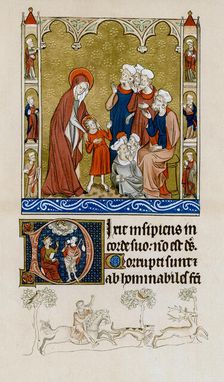 Dixit insipiens in
corde suo: non est ds̄.
Corrupti sunt ⁊
abhominabiles fc̄i